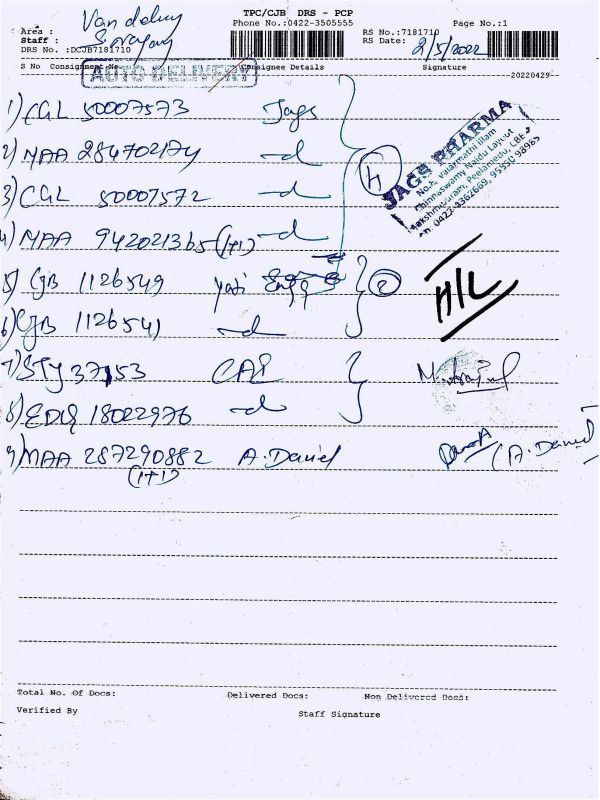 TPC/CJB DRS - PCP
Phone No.:0422-3505555 Page No.:1
Area : Van
Staff : RS No.:7181710
DRS No. :DCJB7181710 RS Date: 2/5/2022
S No Consignment No. Consignee Details Signature
AUTO DELIVERY
20220429
1) CGL 50007573 Jags
2) MAA 284702174 -d
3) CGL 50007572 -d
4) MAA 942021365 (1+1) -d
4
JAGS PHARMA
No.4, Valarmathi illam
Chinnaswamy Naidu Layout
Lakshmipuram, Peelamedu, CBE-
Ph: 0422-4362669, 95850 98985
5) CJB 1126549 Engg
2
H/L
6) CJB 1126541 -d
7) STJ 37153 CAI
8) 18022976 -d
9) MAA 287290882 A. Daniel
(1+1)
(A. Daniel
Total No. Of Docs: Delivered Docs: Non Delivered Docs:
Verified By Staff Signature